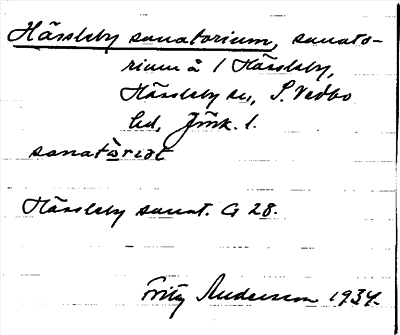 Hässleby sanatorium, sanato-
rium å 1 Hässleby,
Hässleby sn, S. Vedbo
hd, Jönk. l.
sanatòriet
Hässleby sanat. G 28.
Fritz Andersson 1934.